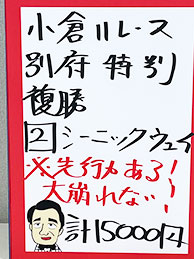 小倉11レース
別府特別
複勝
2 シーニックウェイ
※先行力ある!
大崩れない!
計15000円